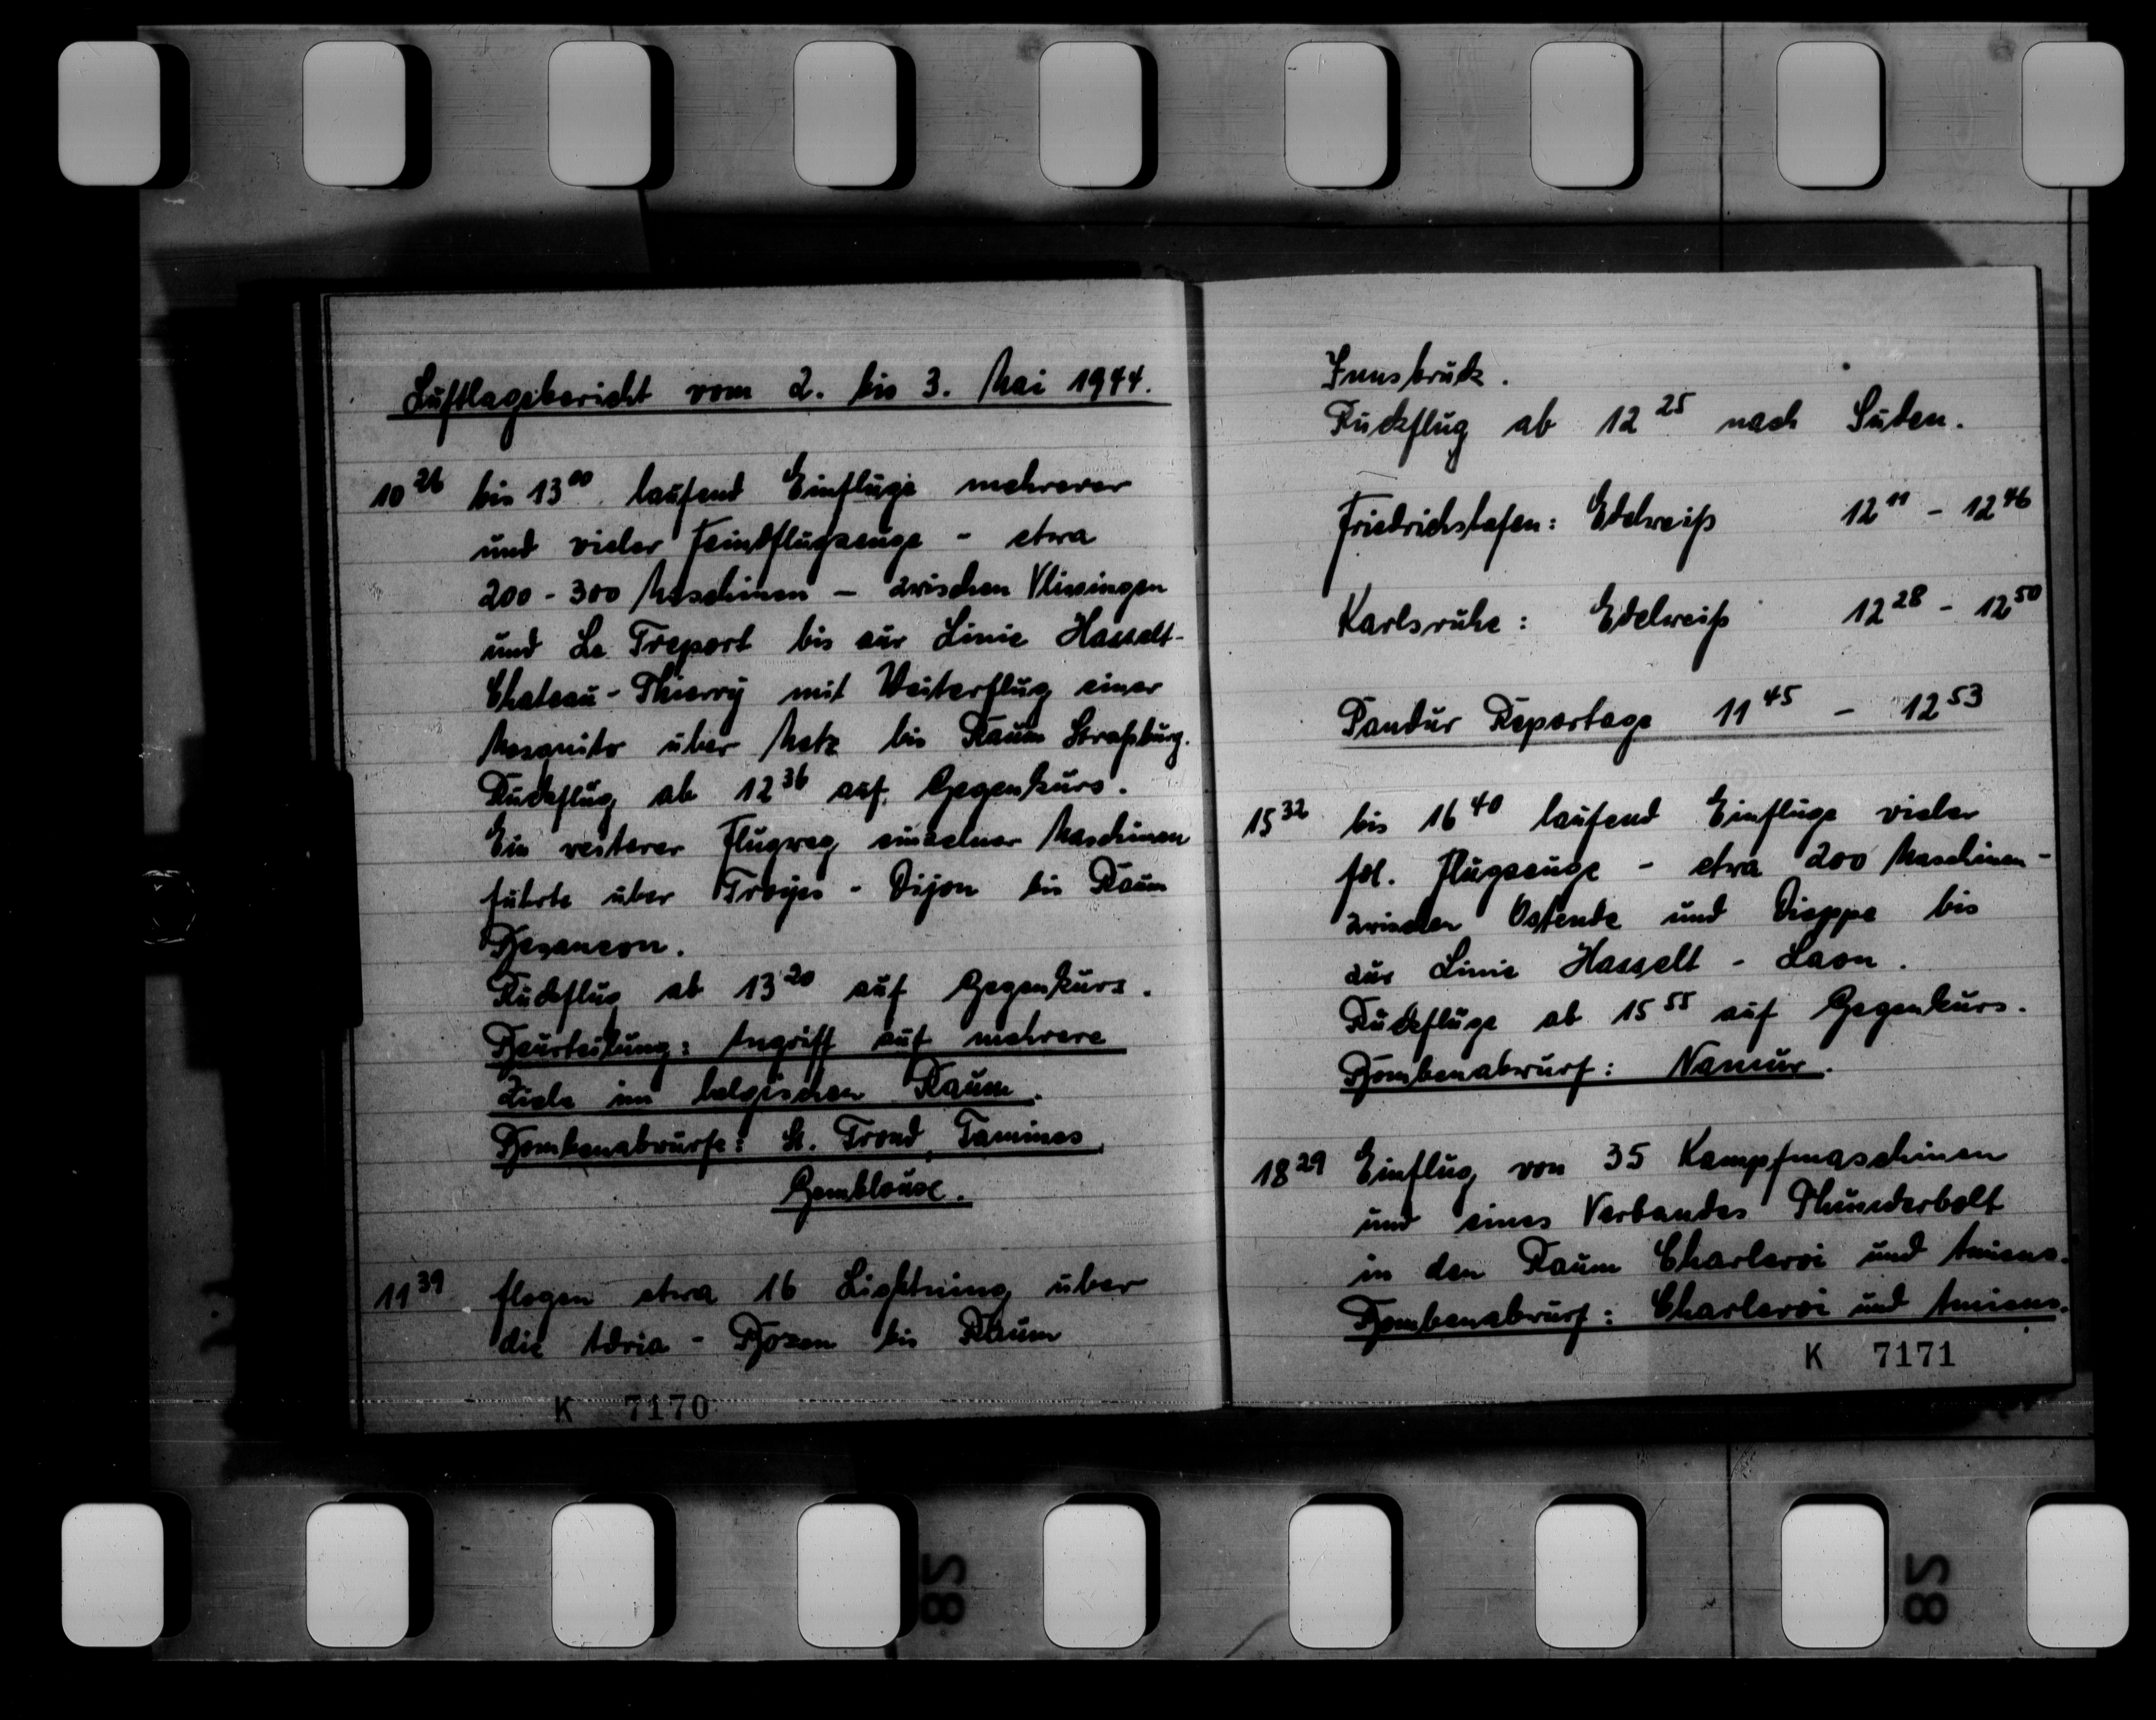 Luftlagebericht vom 2. bis 3. Mai 1944.
10 26 bis 13 00 laufend Einflüge mehrerer
und vieler Feindflugzeuge - etwa
200 - 300 Maschinen - zwischen Vlissingen
und Le Treport bis zur Linie Hasselt-
Chateau - Thierry mit Weiterflug einer
Mosquito über Metz bis Raum Straßburg.
Rückflug ab 12 36 auf Gegenkurs.
Ein weiterer Flugweg einzelner Maschinen
führte über Troyes - Dijon bis Raum
Besancon.
Rückflug ab 13 20 auf Gegenkurs.
Beurteilung: Angriff auf mehrere
Ziele im belgischen Raum.
Bombenabwürfe: St. Trond, Tamines,
Gemblouse.
11 39 flogen etwa 16 Lightning über
die Adria - Bozen bis Raum
K 7170
Innsbruck.
Rückflug ab 12 25 nach Süden.
Friedrichshafen: Edelweiß 12 11 - 12 46
Karlsruhe: Edelweiß 12 28 - 12 50
Pandur Reportage 11 45 - 12 53
15 32 bis 16 40 laufend Einflüge vieler
fdl. Flugzeuge - etwa 200 Maschinen -
zwischen Ostende und Dieppe bis
zur Linie Hasselt - Laon.
Rückflüge ab 15 55 auf Gegenkurs.
Bombenabwurf: Namur.
18 29 Einflug von 35 Kampfmaschinen
und eines Verbandes Thunderbolt
in den Raum Charleroi und Amiens.
Bombenabwurf: Charleroi und Amiens.
K 7171
28
28